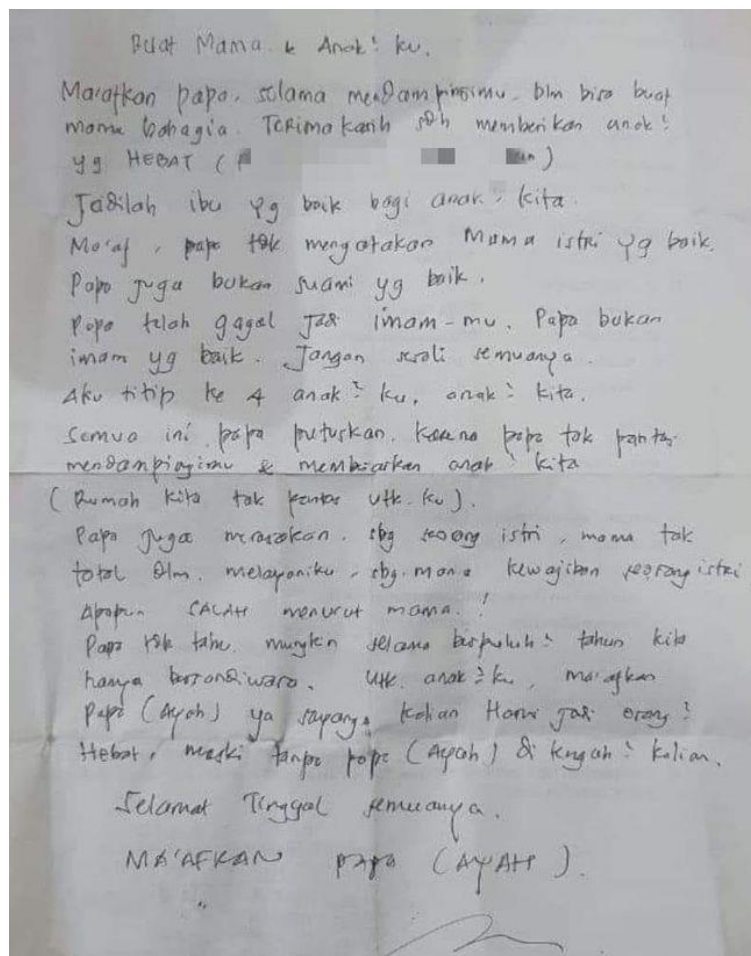 Buat Mama & Anak² ku.
Ma'afkan papa, selama mendampingimu, blm bisa buat
mama bahagia. Terima kasih sdh memberikan anak²
yg HEBAT (
Jadilah ibu yg baik bagi anak², kita.
Ma'af, papa tdk mengatakan Mama istri yg baik.
Papa juga bukan suami yg baik.
Papa telah gagal jadi imam-mu. Papa bukan
imam yg baik. Jangan semuanya.
Aku titip ke 4 anak² ku, anak² kita.
Semua ini papa putuskan. Karena papa tak pantas
mendampingimu & membiarkan anak² kita
(Rumah kita tak pantas utk. ku).
Papa juga merasakan, sbg seorang istri, mama tak
total dlm. melayaniku, sbg. mana kewajiban seorang istri
Apapun SALAH menurut mama.!
Papa tdk tahu, mungkin selama berpuluh² tahun kita
hanya bersandiwara. Utk. anak² ku, ma'afkan
Papa (Ayah) ya sayang. Kalian Harus jadi orang²
Hebat, meski tanpa papa (Ayah) di tengah² kalian.
Selamat Tinggal semuanya.
MA'AFKAN papa (AYAH).